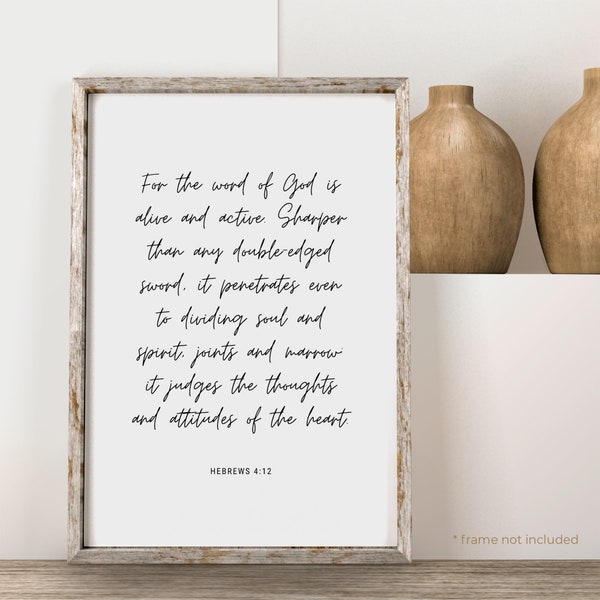 For the word of God is
alive and active Sharper
than any double-edged
sword, it penetrates even
to dividing soul and
spirit, joints and marrow
it judges the thoughts
and attitudes of the heart.
HEBREWS 4:12
* frame not included